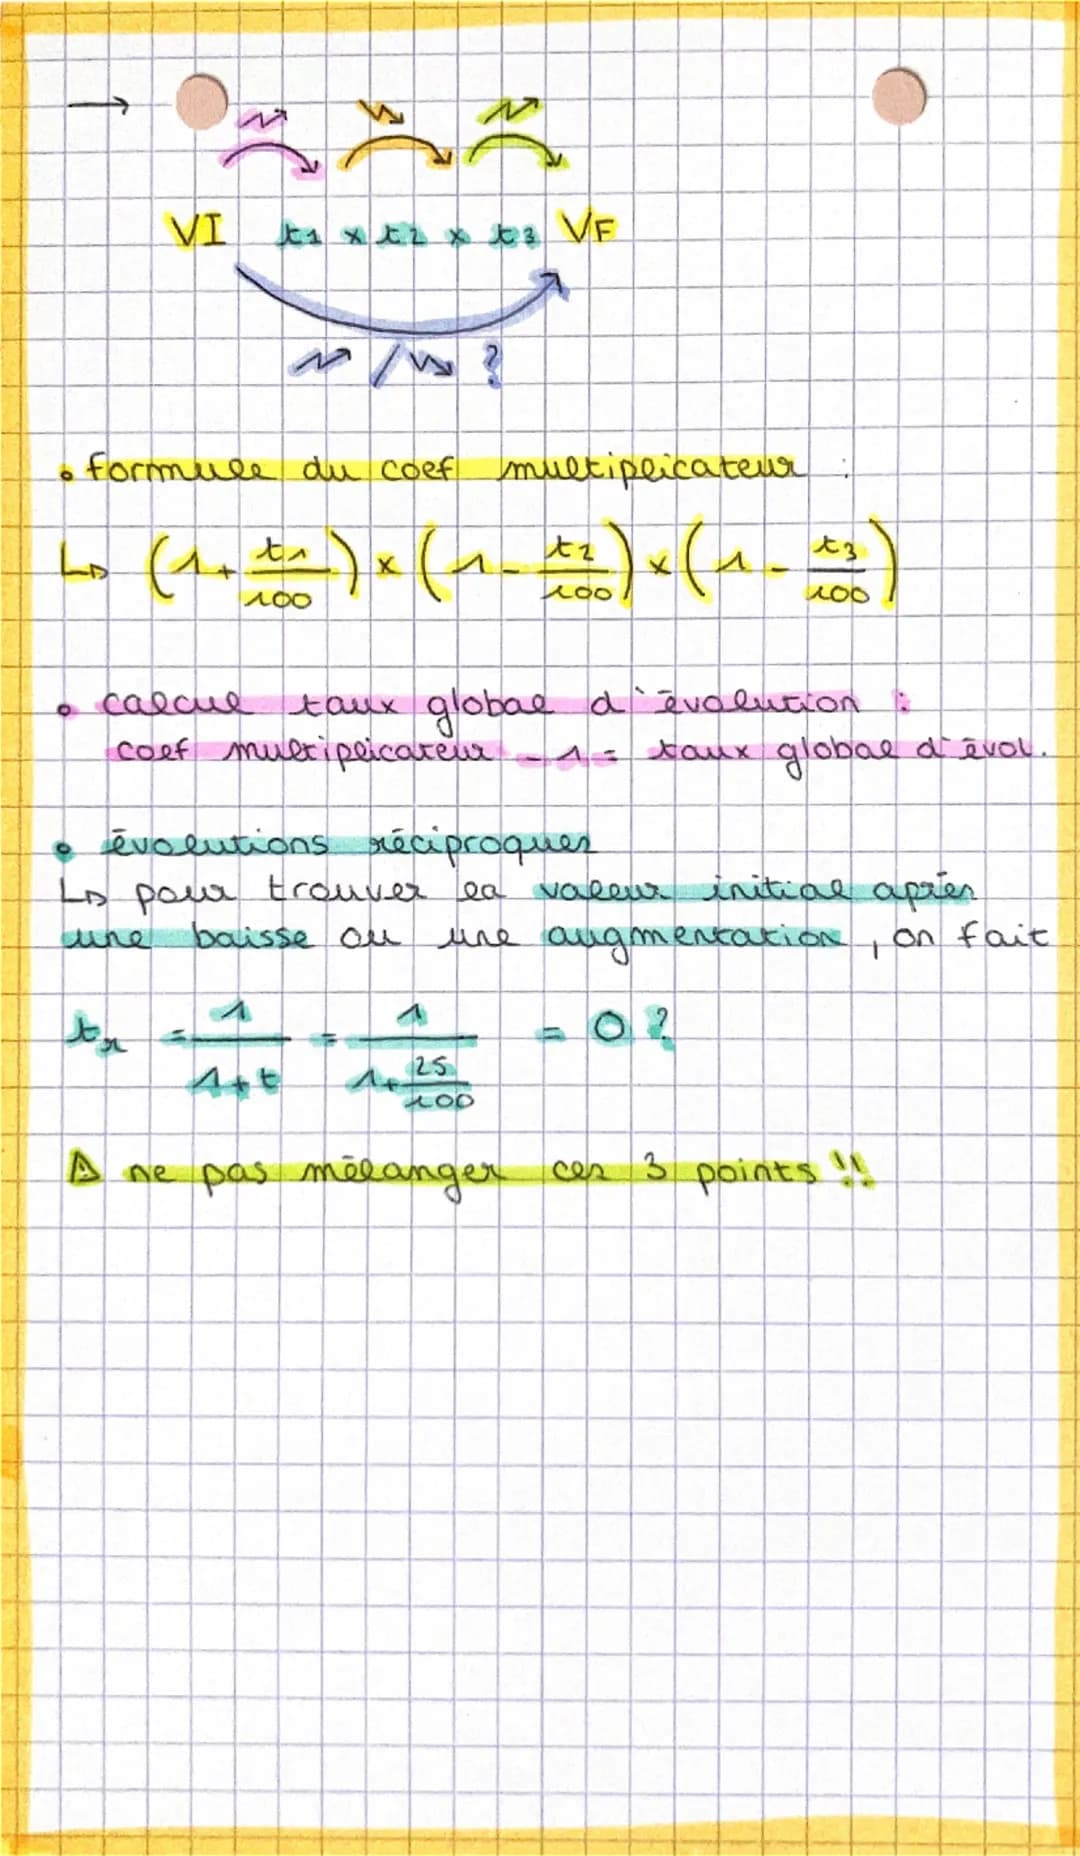 →
VI t1 x t2 x t3 VF
/ ?
• formule du coef multiplicateur :
↳ (1 + t1/100) x (1 - t2/100) x (1 - t3/100)
• calcul taux global d'évolution :
coef multiplicateur - 1 = taux global d'évol.
• évolutions réciproques
↳ pour trouver la valeur initial après
une baisse ou une augmentation, on fait
tr = 1/1+t = 1/1+25/100 = 0 ?
⚠ ne pas mélanger ces 3 points !!